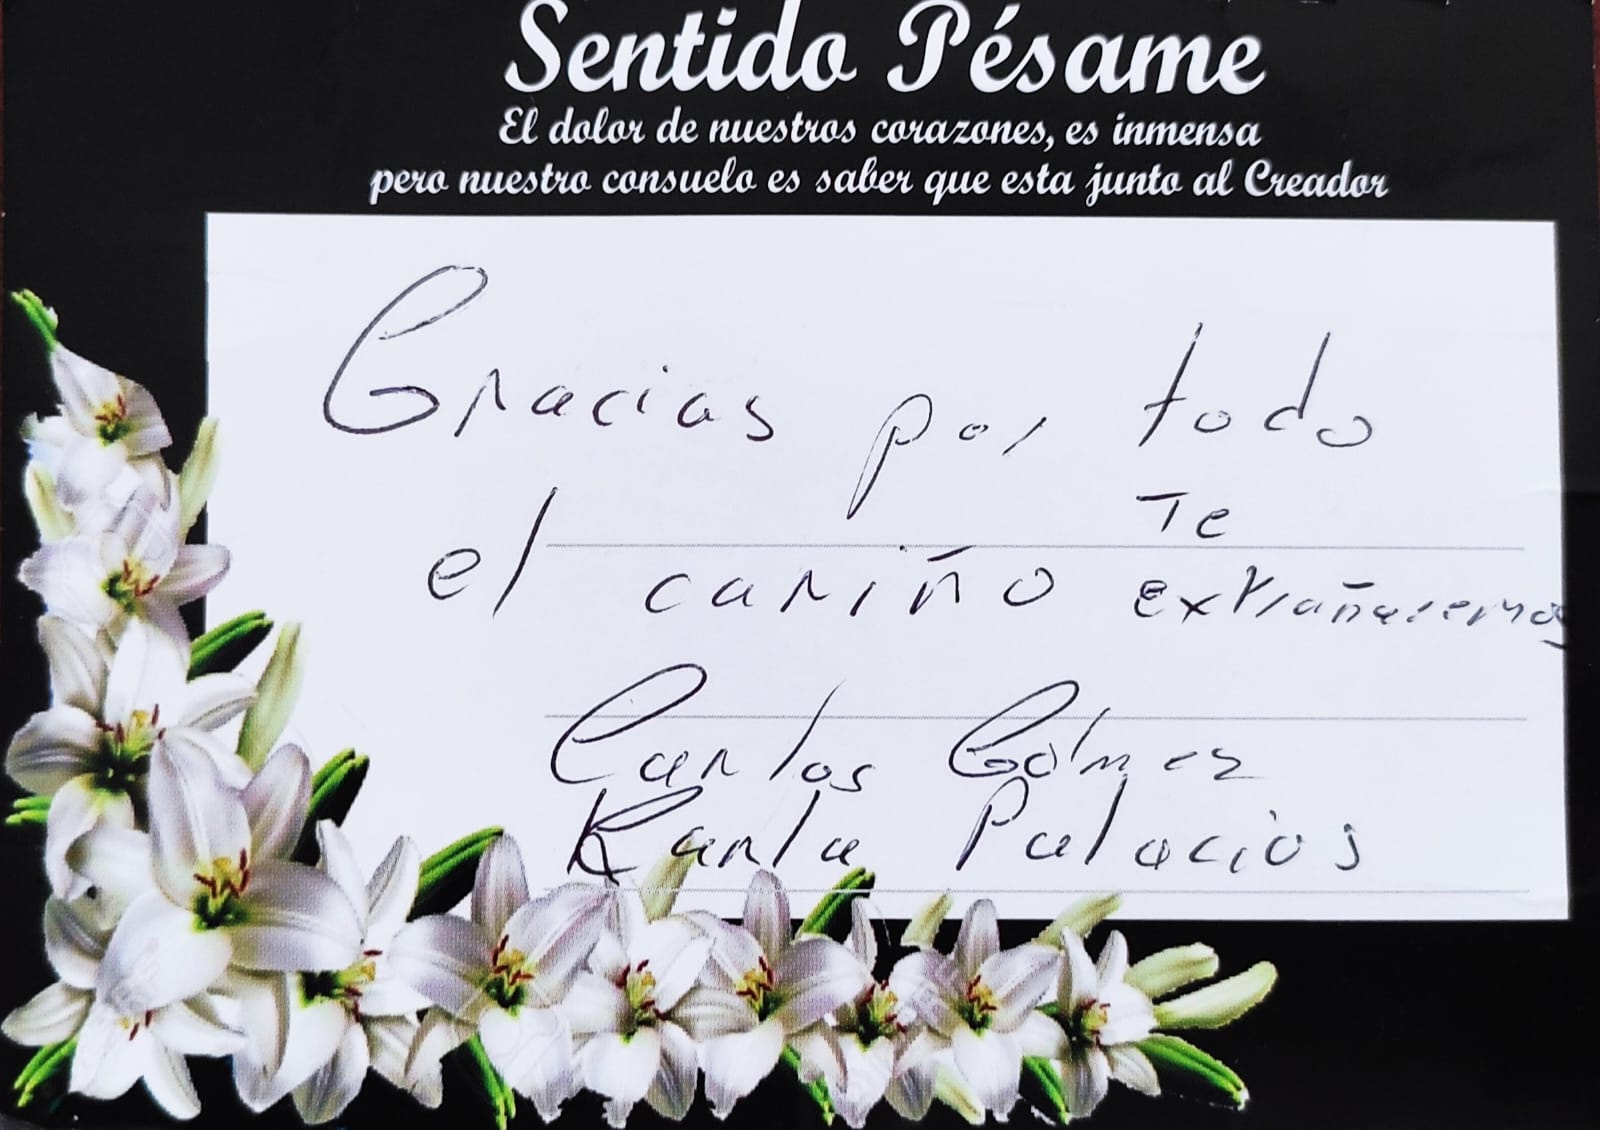 Sentido Pésame
El dolor de nuestros corazones, es inmensa
pero nuestro consuelo es saber que esta junto al Creador
Gracias por todo
el cariño Te extrañaremos
Carlos Gómez
Karla Palacios